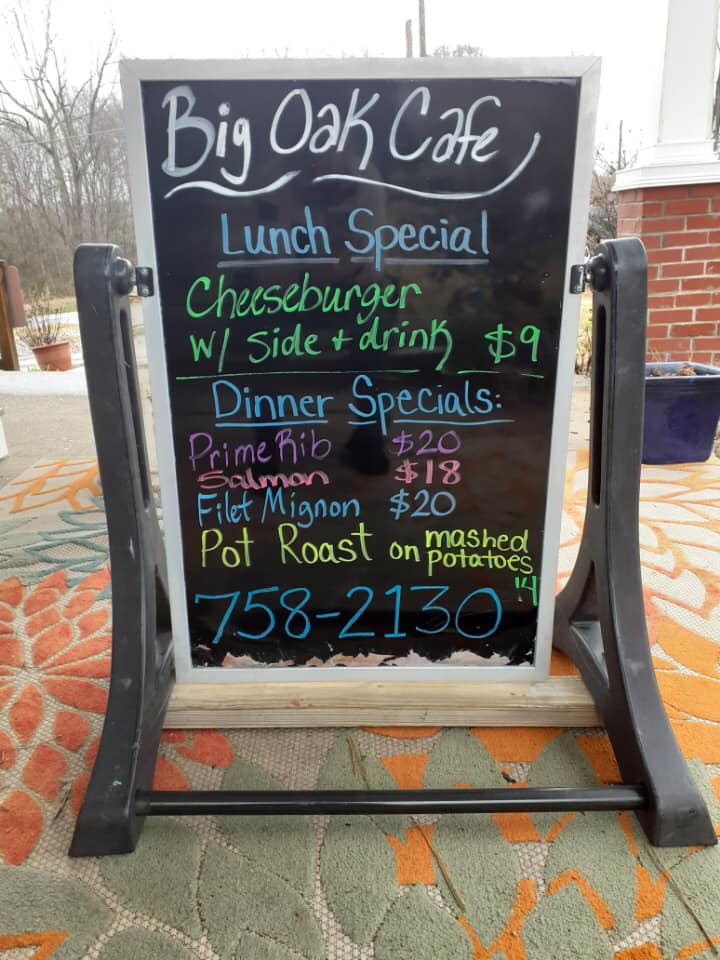 Big Oak Cafe
Lunch Special
Cheeseburger
w/ side + drink $9
Dinner Specials:
Prime Rib $20
Salmon $18
Filet Mignon $20
Pot Roast on mashed potatoes
758-2130